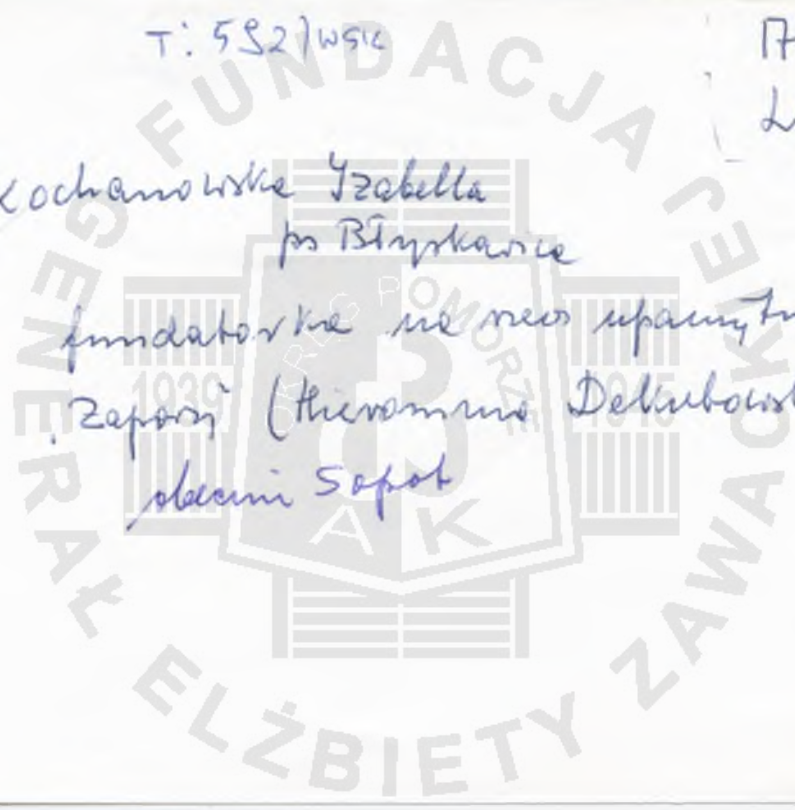 T: 592/WSK
17
Kochanowska Izabella
ps Błyskawica
fundatorka na rzecz upamiętn
Zapory (Hieronima Dekutowsk
obecnie Sopot
FUNDACJA GENERAŁ ELŻBIETY ZAWACKIEJ
OKRĘG POMORZE
1939 1945
AK